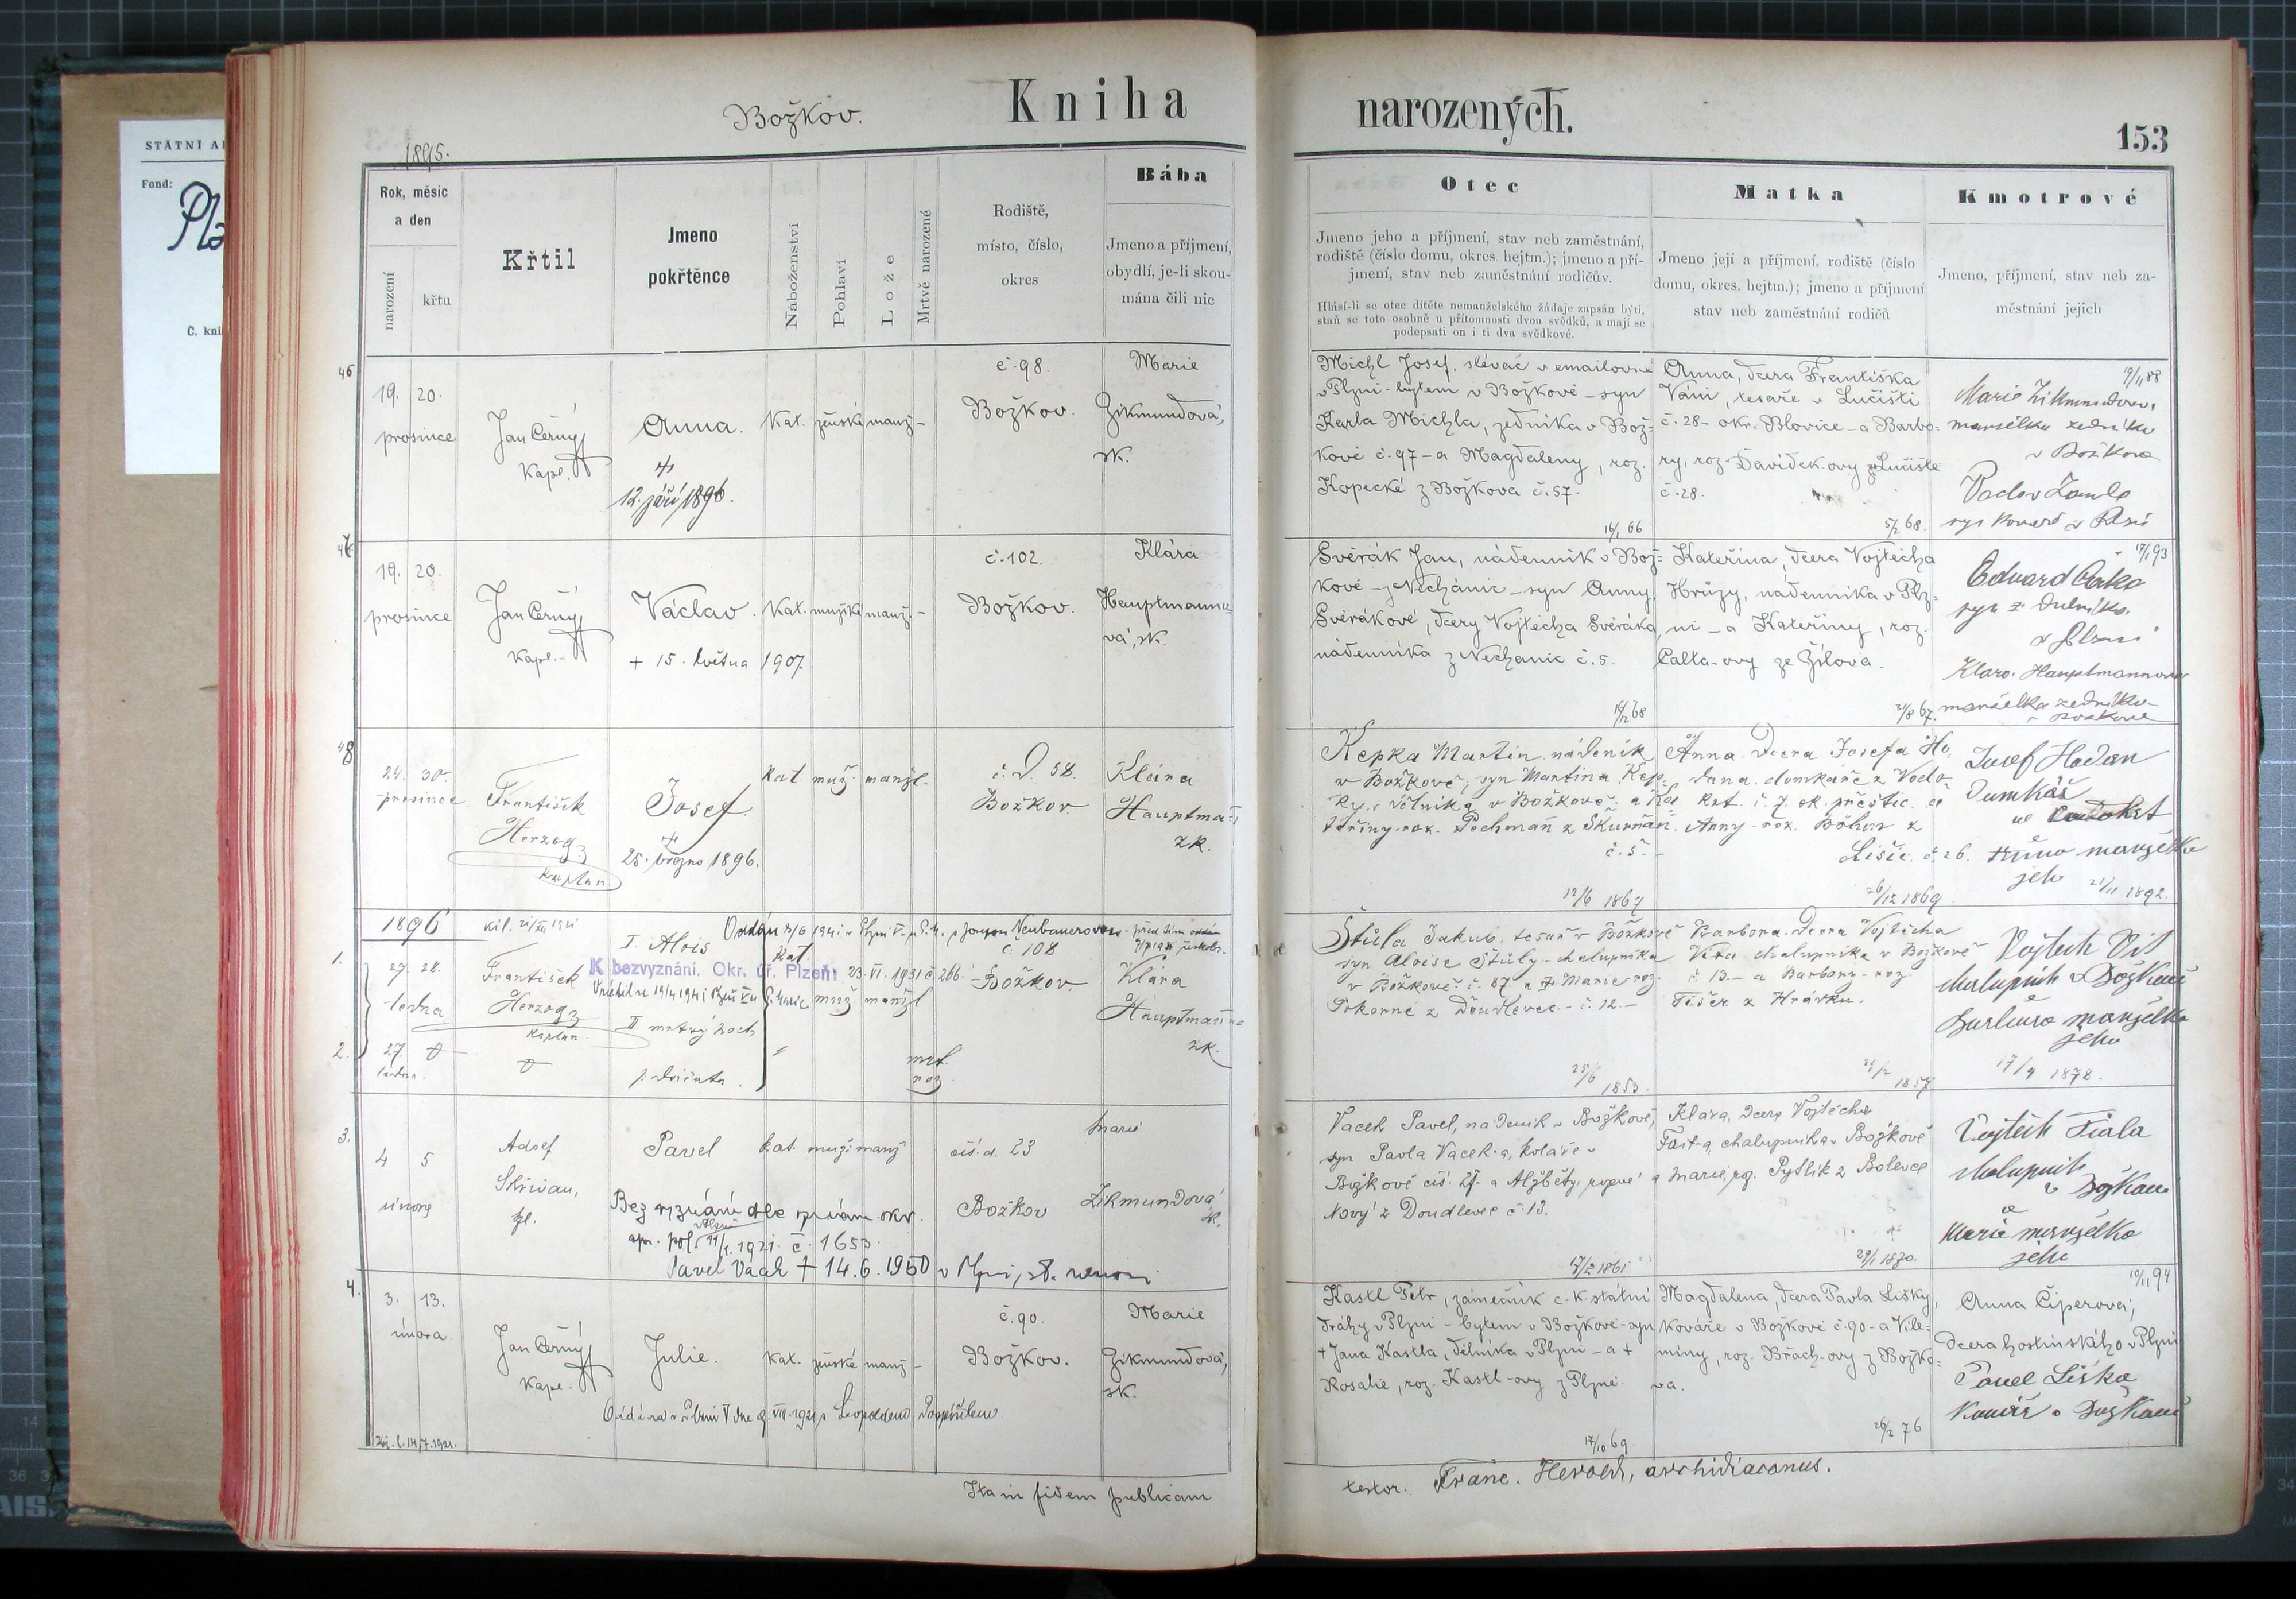 STÁTNÍ A
Fond:
Č. kni
Božkov.
Kniha
narozených.
153
1895.
Rok, měsíc
a den
narození
křtu
Křtil
Jmeno
pokřtěnce
Náboženství
Pohlaví
Lože
Mrtvě narozené
Rodiště,
místo, číslo,
okres
Bába
Jmeno a příjmení,
obydlí, je-li skou-
mána čili nic
Otec
Jmeno jeho a příjmení, stav neb zaměstnání,
rodiště (číslo domu, okres hejtm.); jmeno a pří-
jmení, stav neb zaměstnání rodičův.
Hlásí-li se otec dítěte nemanželského žádaje zapsán býti,
staň se toto osobně u přítomnosti dvou svědků, a mají se
podepsati on i ti dva svědkové.
Matka
Jmeno její a příjmení, rodiště (číslo
domu, okres. hejtm.); jmeno a příjmení
stav neb zaměstnání rodičů
Kmotrové
Jmeno, příjmení, stav neb za-
městnání jejich
46
19. 20.
prosince
Jan Černý
kapl.
Anna.
12. září 1896.
Kat. ženské manž. -
č. 98.
Božkov.
Marie
Zikmundová,
zk.
Michl Josef, slévač v emailovně
v Plzni - bytem v Božkově - syn
Karla Michla, zedníka v Bož=
kově č. 97 - a Magdaleny, roz.
Kopecké z Božkova č. 57.
16/1 66
Anna, dcera Františka
Váni, tesaře v Lučišti
č. 28 - okr. Blovice - a Barbo=
ry, roz. Davídek-ovy z Lučiště
č. 28.
5/2 68.
Marie Zikmundova,
manželka zedníka
v Božkově
Václav
syn kováře v Plzni
47
19. 20.
prosince
Jan Černý
kapl.
Václav.
+ 15. května 1907
Kat. mužské manž. -
č. 102.
Božkov.
Klára
Hauptmanno-
vá, zk.
Svěrák Jan, nádenník v Bož=
kově - z Nechánic - syn Anny
Svěrákové, dcery Vojtěcha Svěráka,
nádenníka z Nechánic č. 5.
Kateřina, dcera Vojtěcha
Hrůzy, nádenníka v Plz=
ni - a Kateřiny, roz.
Calta-ovy ze Žílova.
21/8 67.
17/1 93
Edvard
v Plzni
Klara Hauptmannova
manželka zedníka
v Božkově
48
24. 30.
prosince
František
Herzog
kaplan
Josef
25. března 1896.
kat muž. manžl.
č. d. 58.
Božkov
Klára
zk.
Kepka Martin nádeník
v Božkově, syn Martina Kep-
ky, dělníka v Božkově a Ka
teřiny roz. Pechman z Skurňan
č. 5.
12/6 1869
Anna dcera Josefa Ho
dana domkáře z Vodo
krt č. 7 ok. přeštic. a
Anny roz. Böhm z
č. 26.
26/12 1869
Josef Hodan
Domkář
manželka
jeho
21/11 1892.
1896
1.
27. 28.
ledna
František
Herzog
kaplan
I. Alois
kat.
K bezvyznání. Okr. úř. Plzeň: 23. VI. 1931 č. 266.
muž. manžl
II mrtvý hoch
č. 108
Božkov.
Klára
zk.
Štůla Jakub, tesař v Božkově
syn Aloise Štůly - chalupníka
v Božkově č. 87 a Marie roz.
Pokorné z Doudlevec - č. 12. -
25/6 1853.
Barbora dcera Vojtěcha
Víta chalupníka v Božkově
č. 13. - a Barbory roz.
Fišer z Hrádku.
1857
Vojtěch Vít
chalupník v Božkově
Barbora manželka
jeho
17/9 1878.
2.
27.
ledna.
mrt.
roz.
3.
4 5
února
Adolf
Pavel
kat. muž. manž
čís. d. 23
Božkov
Marie
Zikmundová
zk.
Bez vyznání dle oznám. okr.
1921. č. 1653.
Pavel Vacek + 14. 6. 1950 v Plzni,
Vacek Pavel, nádeník v Božkově,
syn Pavla Vacek-a, koláře v
Božkově čís. 27. a Alžběty, rozené
Nový z Doudlevec č. 13.
17/2 1861
Klára, dcera Vojtěcha
Fast-a, chalupníka v Božkově
a Marie, roz. Pytlík z Bolevce
29/1 1870.
Vojtěch Fiala
chalupník
v Božkově
a
Marie manželka
jeho
4.
3. 13.
února
Jan Černý
kapl.
Julie.
kat. ženské manž. -
č. 90.
Božkov.
Marie
Zikmundová,
zk.
Kastl Petr, zámečník c. k. státní
dráhy v Plzni - bytem v Božkově - syn
+ Jana Kastla, dělníka v Plzni - a +
Rosalie, roz. Kastl-ovy z Plzně.
17/10 69
Magdalena, dcera Pavla Lišky,
kováře v Božkově č. 90 - a Vile=
míny, roz. Brach-ovy z Božko=
va.
26/2 76
19/11 94
Anna Čiperová,
dcera hostinského v Plzni
Pavel Liška
Kovář v Božkově
Ita in fidem publicam
testor. Franc. Herold, archidiaconus.